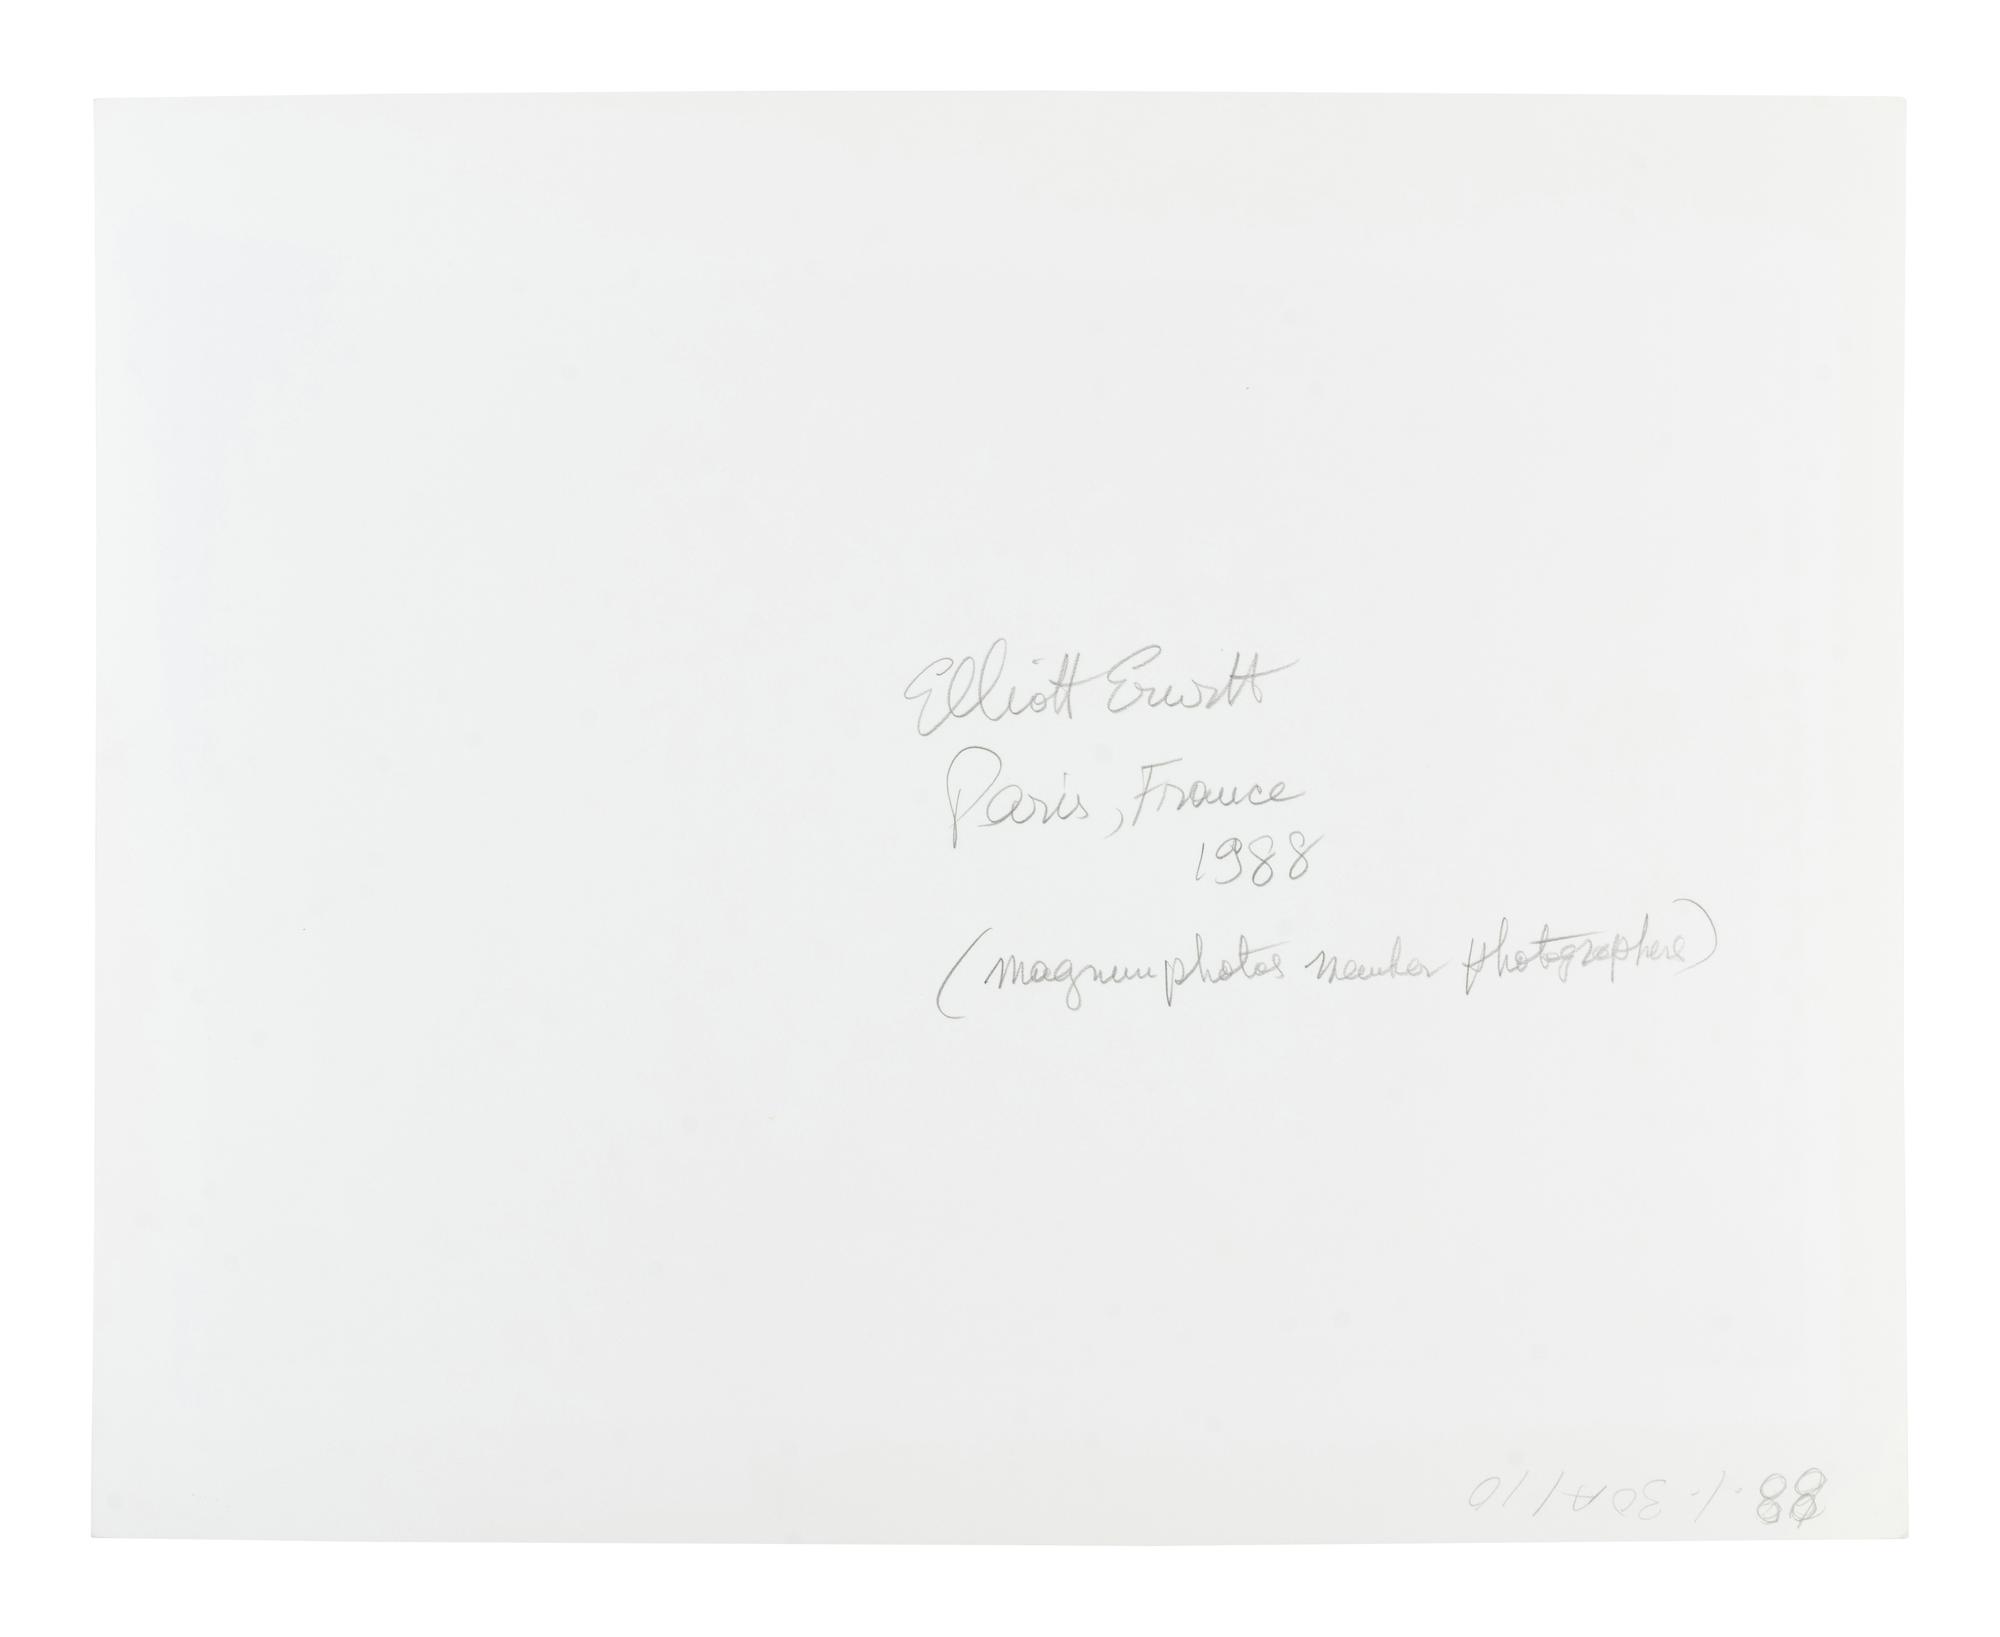 Elliott Erwitt
Paris, France
1988
(magnum photos member photographers)
88.